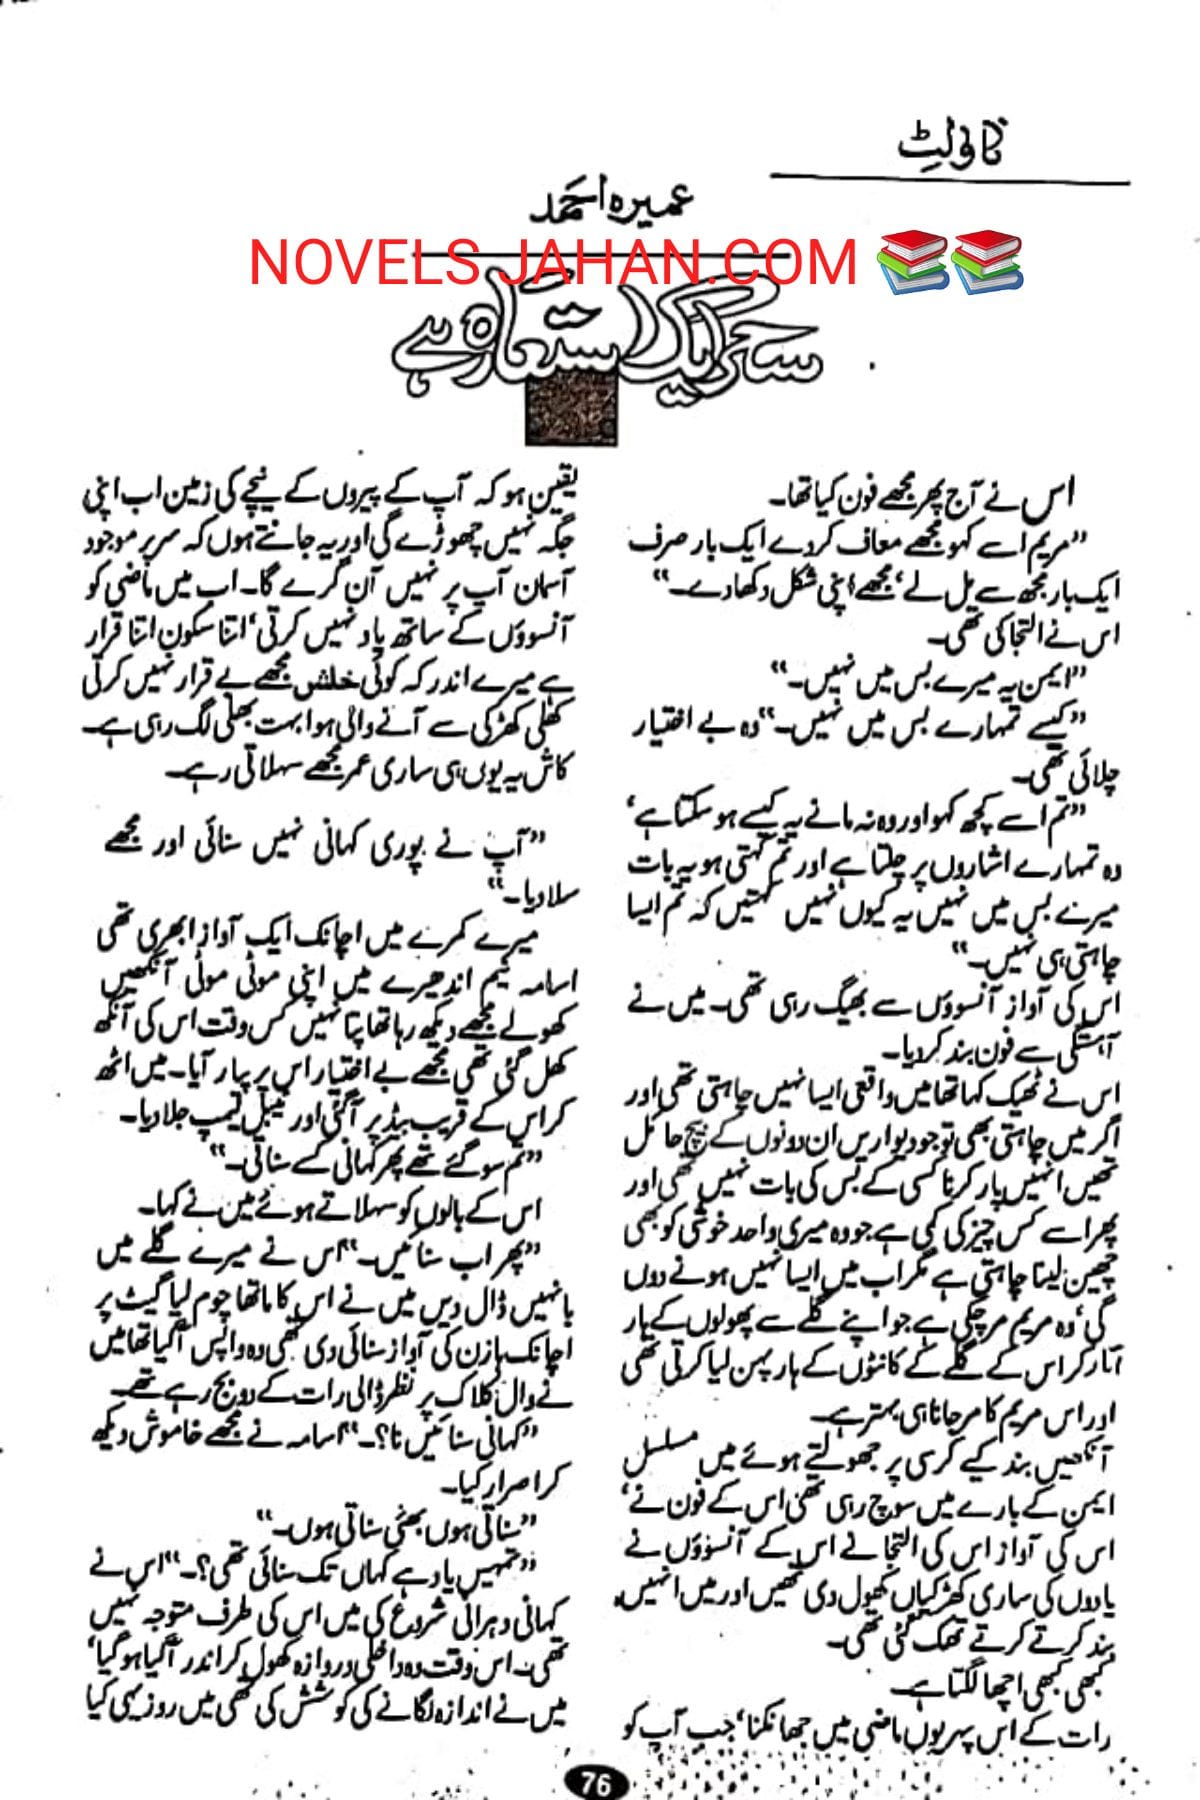 ناولٹ
عمیرہ احمد
NOVELS JAHAN.COM
سحر ایک استعارہ ہے
اس نے آج پھر مجھے فون کیا تھا۔
”مریم اسے کہو مجھے معاف کر دے ایک بار صرف
ایک بار مجھ سے مل لے‘ مجھے اپنی شکل دکھا دے۔“
اس نے التجا کی تھی۔
”ایمن یہ میرے بس میں نہیں۔“
”کیسے تمہارے بس میں نہیں۔“ وہ بے اختیار
چلائی تھی۔
”تم اسے کچھ کہو اور وہ نہ مانے یہ کیسے ہو سکتا ہے‘
وہ تمہارے اشاروں پر چلتا ہے اور تم کہتی ہو یہ بات
میرے بس میں نہیں یہ کیوں نہیں کہتیں کہ تم ایسا
چاہتی ہی نہیں۔“
اس کی آواز آنسوؤں سے بھیگ رہی تھی۔ میں نے
آہستگی سے فون بند کر دیا۔
اس نے ٹھیک کہا تھا میں واقعی ایسا نہیں چاہتی تھی اور
اگر میں چاہتی بھی تو جو دیواریں ان دونوں کے بیچ حائل
تھیں انہیں پار کرنا کسی کے بس کی بات نہیں تھی اور
پھر اسے کس چیز کی کمی ہے جو وہ میری واحد خوشی کو بھی
چھین لینا چاہتی ہے مگر اب میں ایسا نہیں ہونے دوں
گی‘ وہ مریم مر چکی ہے جو اپنے گلے سے پھولوں کے ہار
اتار کر اس کے گلے کے کانٹوں کے ہار پہن لیا کرتی تھی
اور اس مریم کا مر جانا ہی بہتر ہے۔
آنکھیں بند کیے کرسی پر جھولتے ہوئے میں مسلسل
ایمن کے بارے میں سوچ رہی تھی اس کے فون نے‘
اس کی آواز اس کی التجا نے اس کے آنسوؤں نے
یادوں کی ساری کھڑکیاں کھول دی تھیں اور میں انہیں
بند کرتے کرتے تھک گئی تھی۔
کبھی کبھی اچھا لگتا ہے۔
رات کے اس پہر یوں ماضی میں جھانکنا‘ جب آپ کو
یقین ہو کہ آپ کے پیروں کے نیچے کی زمین اب اپنی
جگہ نہیں چھوڑے گی اور یہ جانتے ہوں کہ سر پر موجود
آسمان آپ پر نہیں آن گرے گا۔ اب میں ماضی کو
آنسوؤں کے ساتھ یاد نہیں کرتی‘ اتنا سکون اتنا قرار
ہے میرے اندر کہ کوئی خلش مجھے بے قرار نہیں کرتی
کھلی کھڑکی سے آنے والی ہوا بہت بھلی لگ رہی ہے۔
کاش یہ یوں ہی ساری عمر مجھے سہلاتی رہے۔
”آپ نے پوری کہانی نہیں سنائی اور مجھے
سلا دیا۔“
میرے کمرے میں اچانک ایک آواز ابھری تھی
اسامہ نیم اندھیرے میں اپنی موٹی موٹی آنکھیں
کھولے مجھے دیکھ رہا تھا پتا نہیں کس وقت اس کی آنکھ
کھل گئی تھی مجھے بے اختیار اس پر پیار آیا۔ میں اٹھ
کر اس کے قریب بیڈ پر آ گئی اور ٹیبل لیمپ جلا دیا۔
”تم سو گئے تھے پھر کہانی کسے سناتی۔“
اس کے بالوں کو سہلاتے ہوئے میں نے کہا۔
”پھر اب سنائیں۔“ اس نے میرے گلے میں
بانہیں ڈال دیں میں نے اس کا ماتھا چوم لیا گیٹ پر
اچانک ہارن کی آواز سنائی دی تھی وہ واپس آ گیا تھا میں
نے وال کلاک پر نظر ڈالی رات کے دو بج رہے تھے۔
”کہانی سنائیں نا؟۔“ اسامہ نے مجھے خاموش دیکھ
کر اصرار کیا۔
”سناتی ہوں بھئی سناتی ہوں۔“
”تمہیں یاد ہے کہاں تک سنائی تھی؟۔“ اس نے
کہانی دہرانی شروع کی میں اس کی طرف متوجہ نہیں
تھی۔ اس وقت وہ داخلی دروازہ کھول کر اندر آ گیا ہو گیا‘
میں نے اندازہ لگانے کی کوشش کی تھی میں روز یہی کیا
76